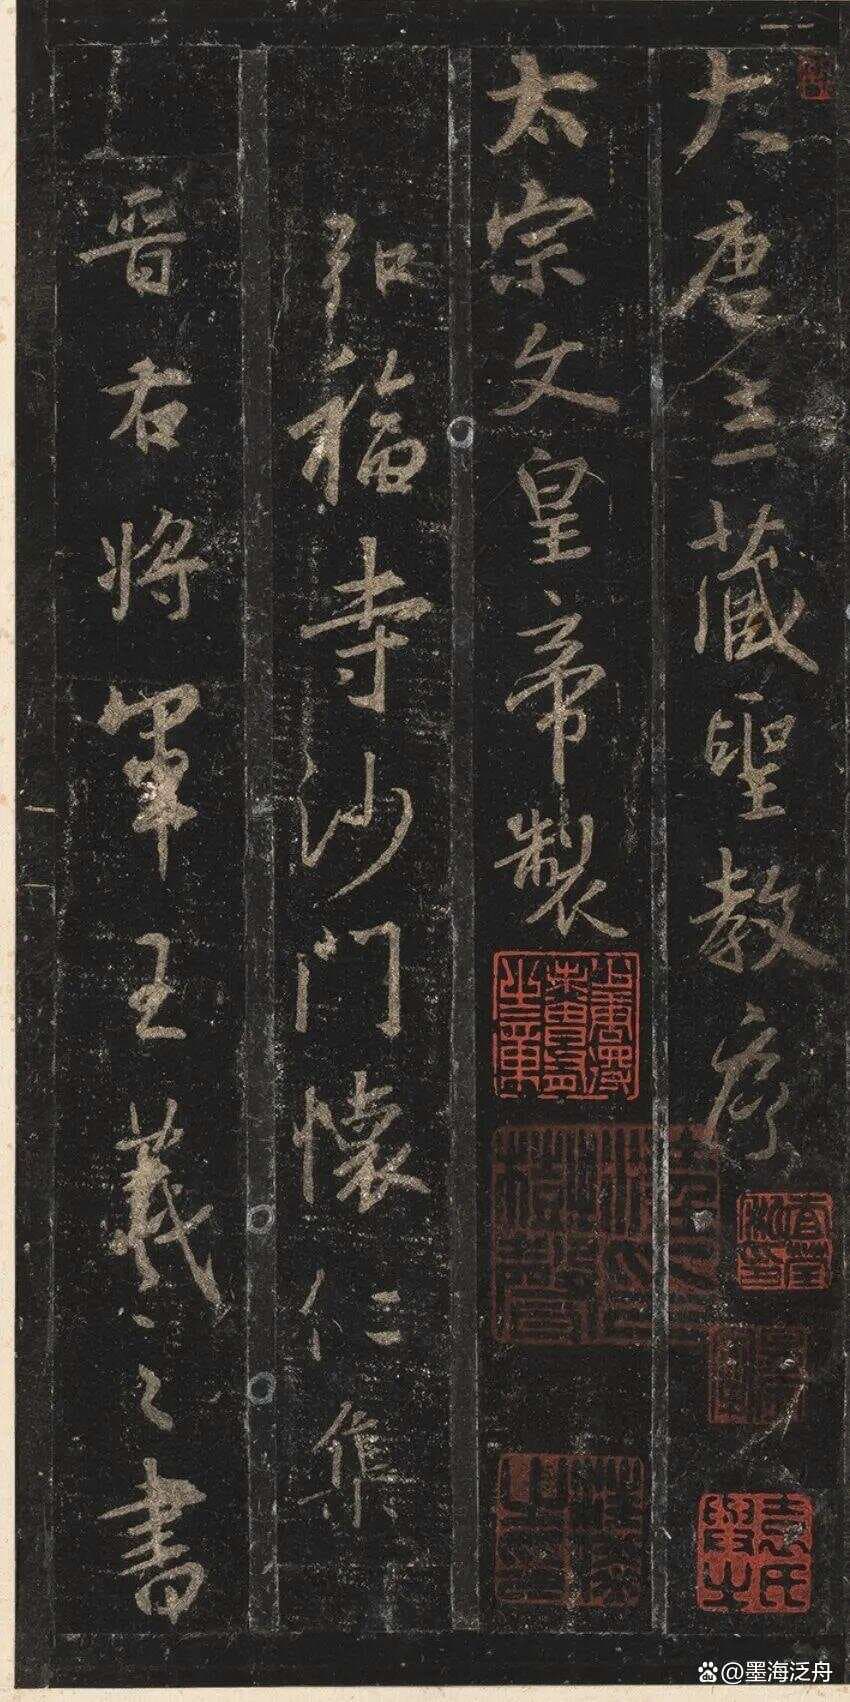 大唐三藏聖教序
太宗文皇帝製
弘福寺沙門懷仁集
晉右將軍王羲之書
@墨海泛舟